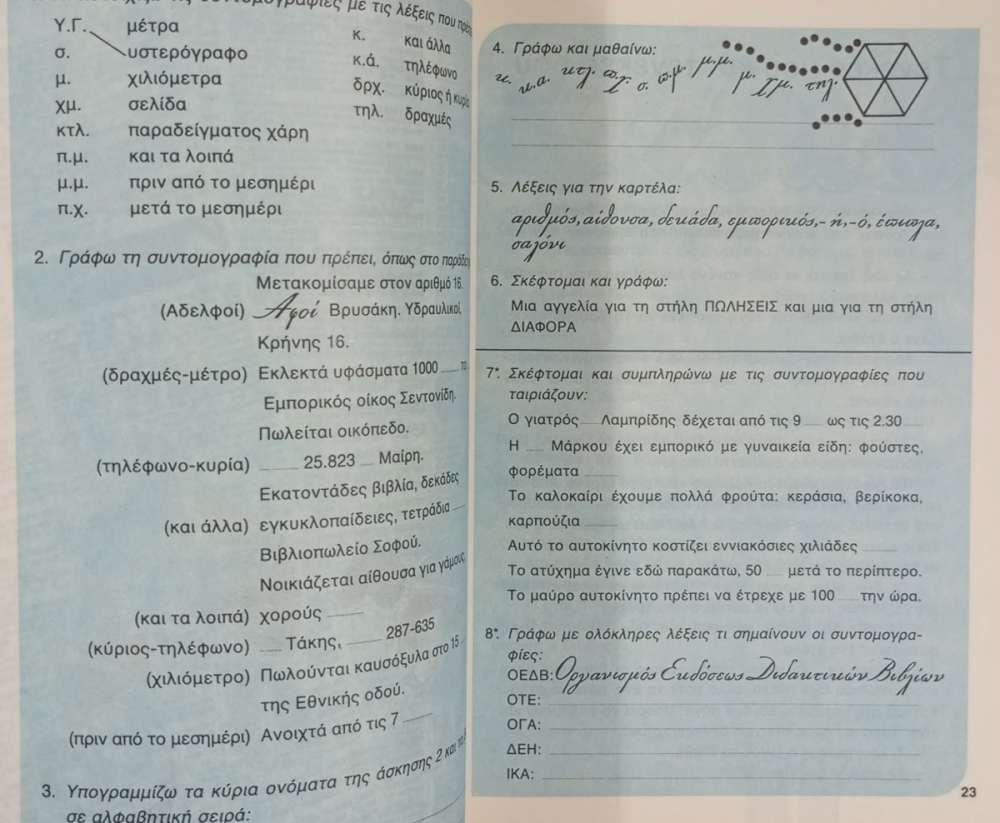 συντομογραφίες με τις λέξεις που
Υ.Γ. μέτρα
σ. υστερόγραφο
μ. χιλιόμετρα
χμ. σελίδα
κτλ. παραδείγματος χάρη
π.μ. και τα λοιπά
μ.μ. πριν από το μεσημέρι
π.χ. μετά το μεσημέρι
κ. και άλλα
κ.ά. τηλέφωνο
δρχ. κύριος ή κυρία
τηλ. δραχμές
2. Γράφω τη συντομογραφία που πρέπει, όπως στο
Μετακομίσαμε στον αριθμό 16.
(Αδελφοί) Αφοί Βρυσάκη. Υδραυλικοί,
Κρήνης 16.
(δραχμές-μέτρο) Εκλεκτά υφάσματα 1000 ... το
Εμπορικός οίκος Σεντονίδη.
Πωλείται οικόπεδο.
(τηλέφωνο-κυρία) ... 25.823 ... Μαίρη.
Εκατοντάδες βιβλία, δεκάδες
(και άλλα) εγκυκλοπαίδειες, τετράδια ...
Βιβλιοπωλείο Σοφού.
Νοικιάζεται αίθουσα για γάμους,
(και τα λοιπά) χορούς ...
(κύριος-τηλέφωνο) ... Τάκης, ... 287-635
(χιλιόμετρο) Πωλούνται καυσόξυλα στο 15
της Εθνικής οδού.
(πριν από το μεσημέρι) Ανοιχτά από τις 7 ...
3. Υπογραμμίζω τα κύρια ονόματα της άσκησης 2 και
σε αλφαβητική σειρά:
4. Γράφω και μαθαίνω:
κ. κ.α. κτλ. π.χ. σ. π.μ. μ.μ. μ. χμ. τηλ.
5. Λέξεις για την καρτέλα:
αριθμός, αίθουσα, δεκάδα, εμπορικός, -ή, -ό, έπιπλα,
σαλόνι
6. Σκέφτομαι και γράφω:
Μια αγγελία για τη στήλη ΠΩΛΗΣΕΙΣ και μια για τη στήλη
ΔΙΑΦΟΡΑ
7*. Σκέφτομαι και συμπληρώνω με τις συντομογραφίες που
ταιριάζουν:
Ο γιατρός ... Λαμπρίδης δέχεται από τις 9 ... ως τις 2.30 ...
Η ... Μάρκου έχει εμπορικό με γυναικεία είδη: φούστες,
φορέματα ...
Το καλοκαίρι έχουμε πολλά φρούτα: κεράσια, βερίκοκα,
καρπούζια ...
Αυτό το αυτοκίνητο κοστίζει εννιακόσιες χιλιάδες ...
Το ατύχημα έγινε εδώ παρακάτω, 50 ... μετά το περίπτερο.
Το μαύρο αυτοκίνητο πρέπει να έτρεχε με 100 ... την ώρα.
8*. Γράφω με ολόκληρες λέξεις τι σημαίνουν οι συντομογρα-
φίες:
ΟΕΔΒ: Οργανισμός Εκδόσεως Διδακτικών Βιβλίων
ΟΤΕ:
ΟΓΑ:
ΔΕΗ:
ΙΚΑ:
23